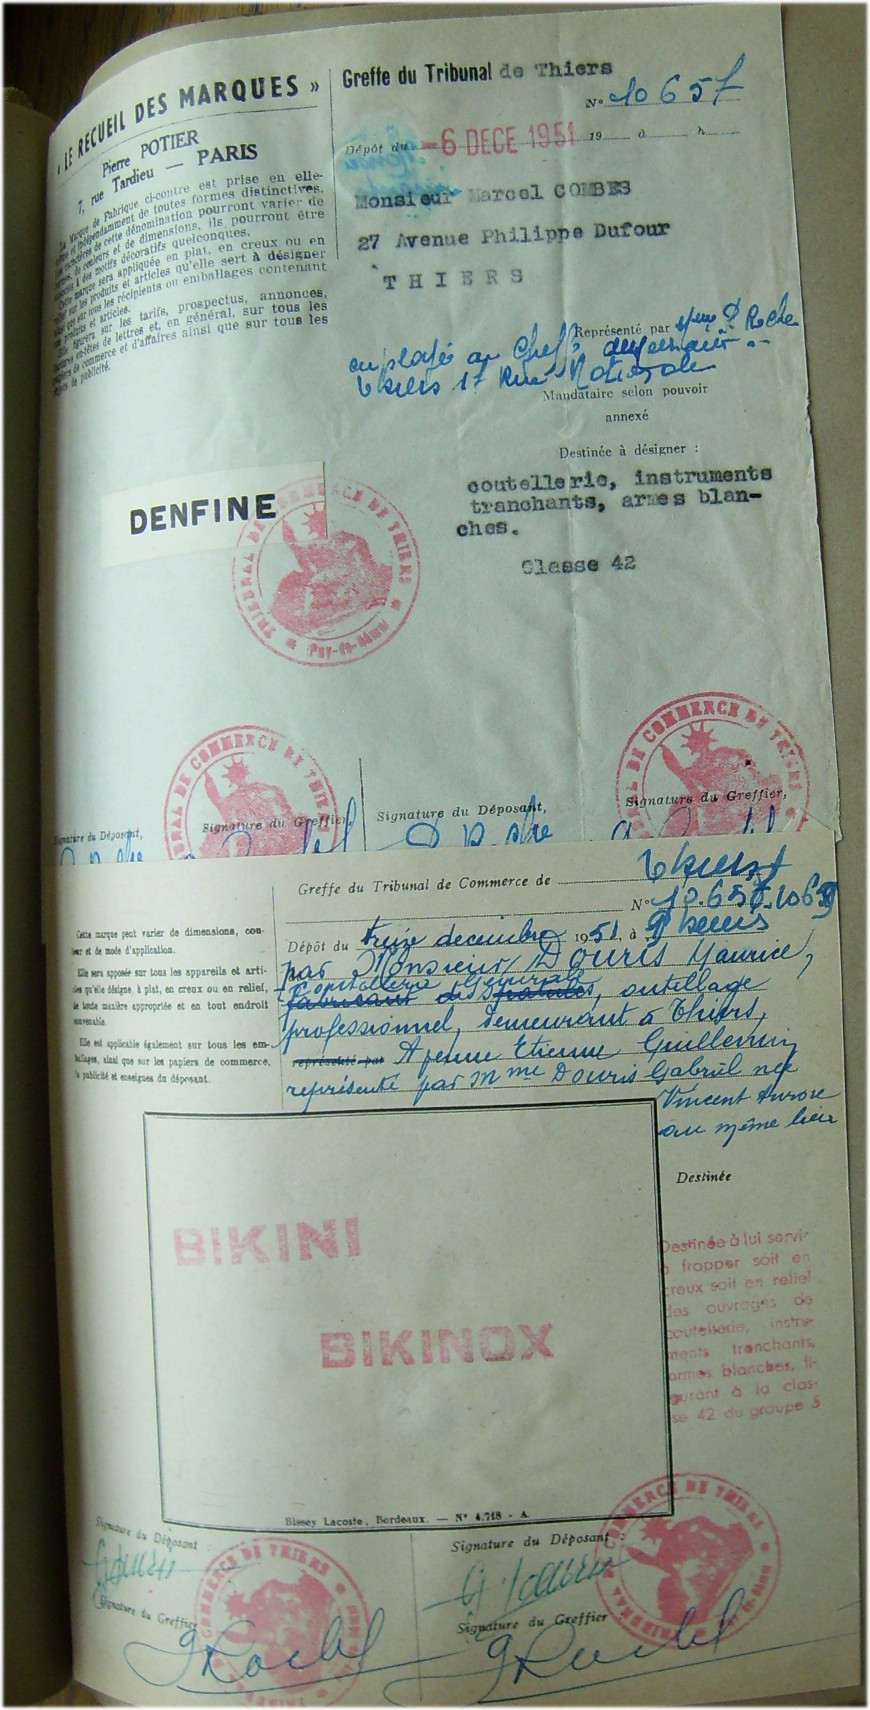 « LE RECUEIL DES MARQUES »
Pierre POTIER
7, rue Tardieu — PARIS
La Marque de Fabrique ci-contre est prise en elle-
même et indépendamment de toutes formes distinctives.
Les caractères de cette dénomination pourront varier de
formes, de couleurs et de dimensions, ils pourront être
associés à des motifs décoratifs quelconques.
Cette marque sera appliquée en plat, en creux ou en
relief sur les produits et articles qu'elle sert à désigner
ainsi que sur tous les récipients ou emballages contenant
ces produits et articles.
Elle figurera sur les tarifs, prospectus, annonces,
factures en-têtes de lettres et, en général, sur tous les
papiers de commerce et d'affaires ainsi que sur tous les
objets de publicité.
Greffe du Tribunal de Thiers
N° 10657
Dépôt du -6 DECE 1951 19 à h
Monsieur Marcel COMBES
27 Avenue Philippe Dufour
THIERS
Représenté par Roche
employé au Greffe demeurant
Thiers 17 Rue Nationale
Mandataire selon pouvoir
annexé
Destinée à désigner :
coutellerie, instruments
tranchants, armes blan-
ches.
Classe 42
DENFINE
TRIBUNAL DE COMMERCE DE THIERS
Puy-de-Dôme
Signature du Déposant,
Signature du Greffier,
Signature du Déposant,
Signature du Greffier,
Greffe du Tribunal de Commerce de Thiers
N° 10.657-1069
Dépôt du treize decembre 1951, à 9 heures
par Monsieur Douris Maurice,
Coutellerie Générale
fabricant de, outillage
professionnel, demeurant à Thiers,
représenté par Avenue Etienne Guillemin
représenté par Mme Douris Gabriel née
Vincent Aurore
au même lieu
Cette marque peut varier de dimensions, cou-
leur et de mode d'application.
Elle sera apposée sur tous les appareils et arti-
cles qu'elle désigne, à plat, en creux ou en relief,
de toute manière appropriée et en tout endroit
convenable.
Elle est applicable également sur tous les em-
ballages, ainsi que sur les papiers de commerce,
la publicité et enseignes du déposant.
Destinée
BIKINI
BIKINOX
Destinée à lui servir
à frapper soit en
creux soit en relief
des ouvrages de
coutellerie, instru-
ments tranchants,
armes blanches, fi-
gurant à la clas-
se 42 du groupe 5
Bissey Lacoste, Bordeaux. — N° 4.718 - A
Signature du Déposant :
Signature du Greffier
Signature du Déposant :
Signature du Greffier